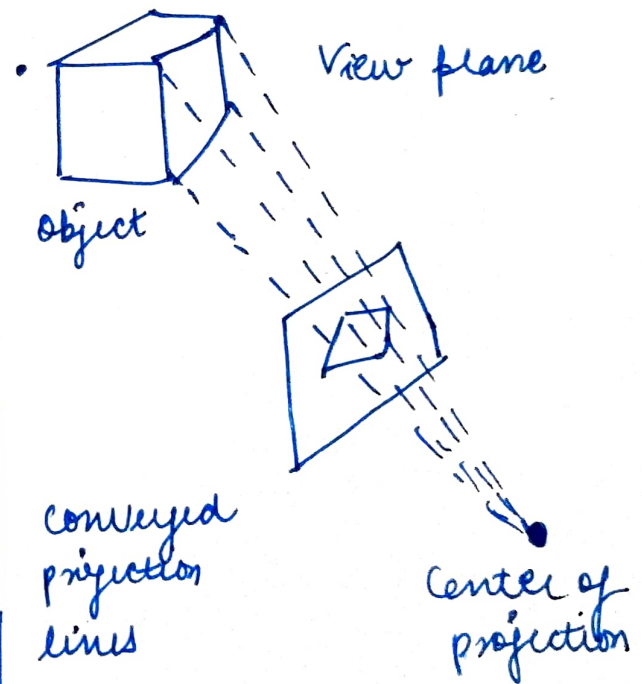 View plane
Object
Conveyed
projection
lines
Center of
projection